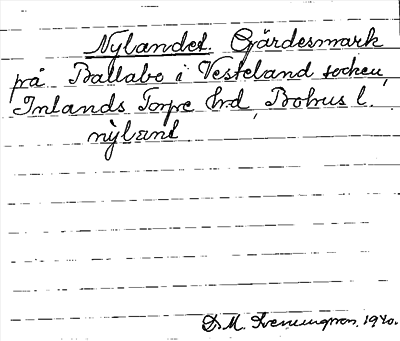 Nylandet. Gärdesmark
på Ballabo i Vesteland socken,
Inlands Torpe hrd, Bohus l.
nỳlænt
D. M. 1940.